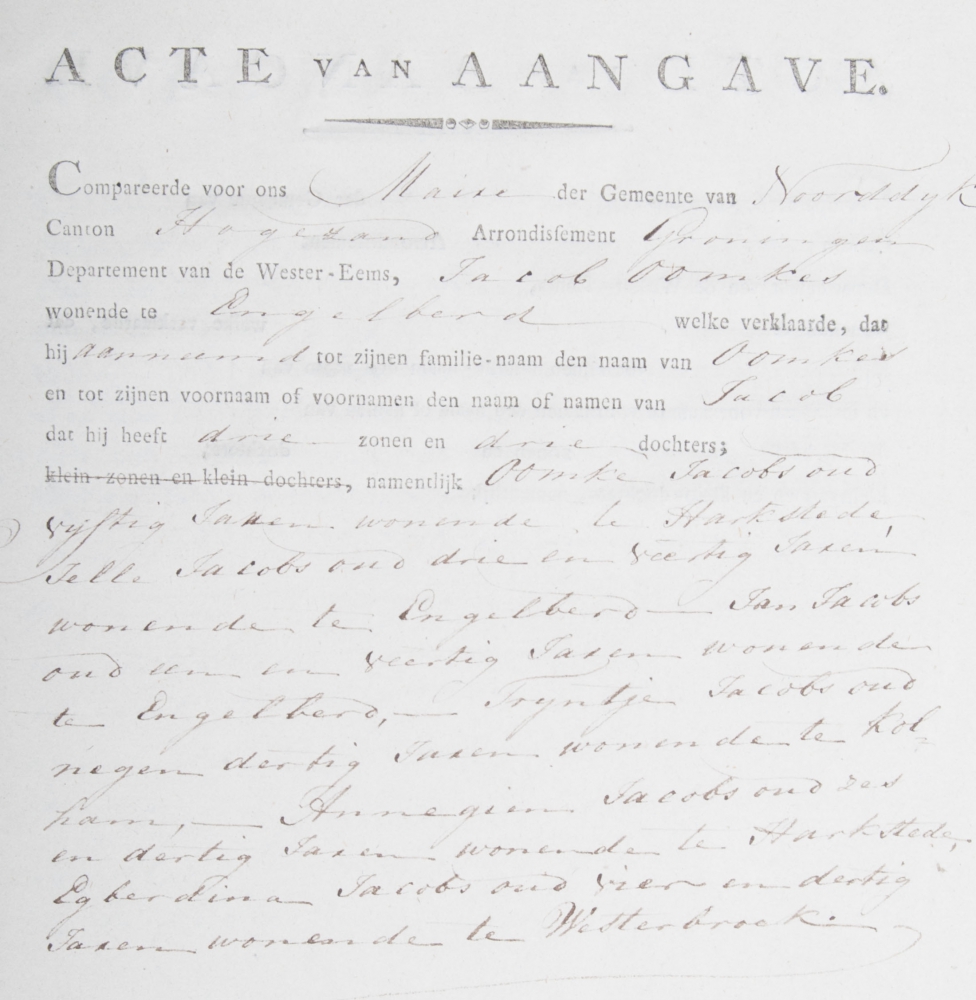 ACTE VAN AANGAVE.
Compareerde voor ons Maire der Gemeente van Noorddyk
Canton Hogezand Arrondissement Groningen
Departement van de Wester-Eems, Jacob Oomkes
wonende te Engelberd welke verklaarde, dat
hij aanneemd tot zijnen familie-naam den naam van Oomkes
en tot zijnen voornaam of voornamen den naam of namen van Jacob
dat hij heeft drie zonen en drie dochters;
klein-zonen en klein dochters, namentlijk Oomke Jacobs oud
vyftig Jaren wonende te Harkstede,
Jelle Jacobs oud drie en veertig Jaren
wonende te Engelberd — Jan Jacobs
oud een en veertig Jaren wonende
te Engelberd, — Tryntje Jacobs oud
negen dertig Jaren wonende te Kol-
ham, — Annegien Jacobs oud zes
en dertig Jaren wonende te Harkstede,
Egberdina Jacobs oud vier en dertig
Jaren wonende te Westerbroek